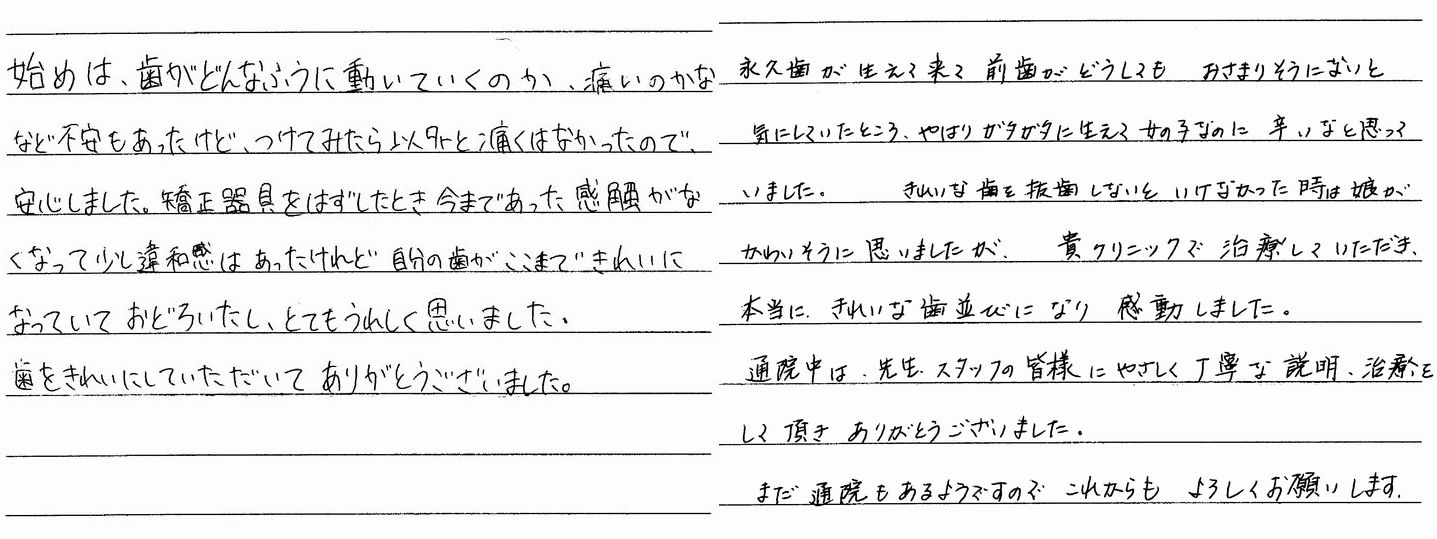 始めは、歯がどんなふうに動いていくのか、痛いのかな
など不安もあったけど、つけてみたら以外と痛くはなかったので、
安心しました。矯正器具をはずしたとき今まであった感触がな
くなって少し違和感はあったけれど自分の歯がここまできれいに
なっていておどろいたし、とてもうれしく思いました。
歯をきれいにしていただいてありがとうございました。
永久歯が生えて来て前歯がどうしても おさまりそうにないと
気にしていたところ、やはりガタガタに生えて女の子なのに 辛いなと思って
いました。 きれいな歯を抜歯しないといけなかった時は娘が
かわいそうに思いましたが、 貴クリニックで治療していただき、
本当に、きれいな歯並びになり 感動しました。
通院中は、先生、スタッフの皆様にやさしく丁寧な説明、治療を
して頂きありがとうございました。
まだ通院もあるようですのでこれからも よろしくお願いします。